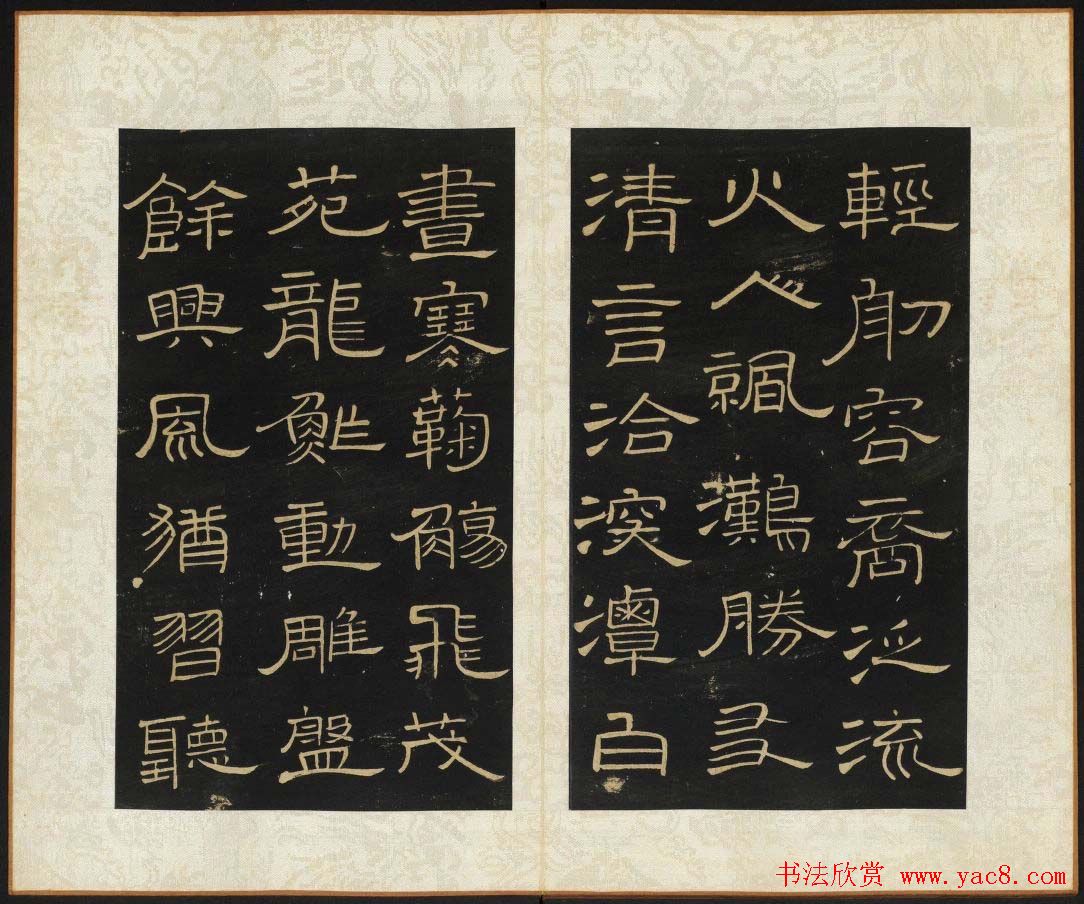 輕舠容裔泛流
火灘勝友
清言洽溪潭白
晝寒鞠觴飛茂
苑龍鮓動雕盤
餘興風猶習聽
书法欣赏 www.yac8.com